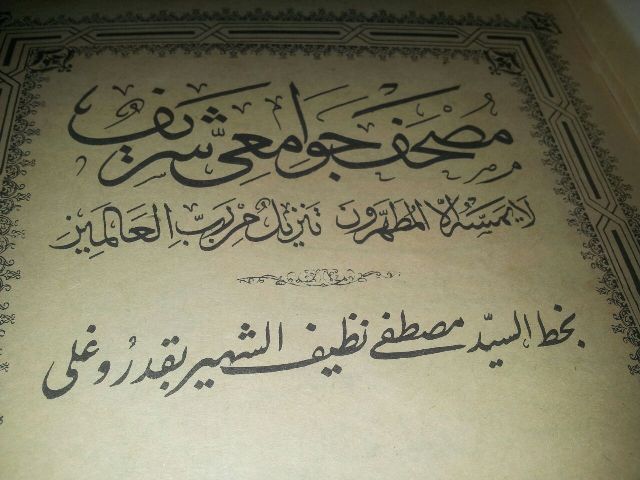 مصحف جوامعى شريف
لا يمسه إلا المطهرون تنزيل من رب العالمين
بخط السيد مصطفى نظيف الشهير بقدروغلى